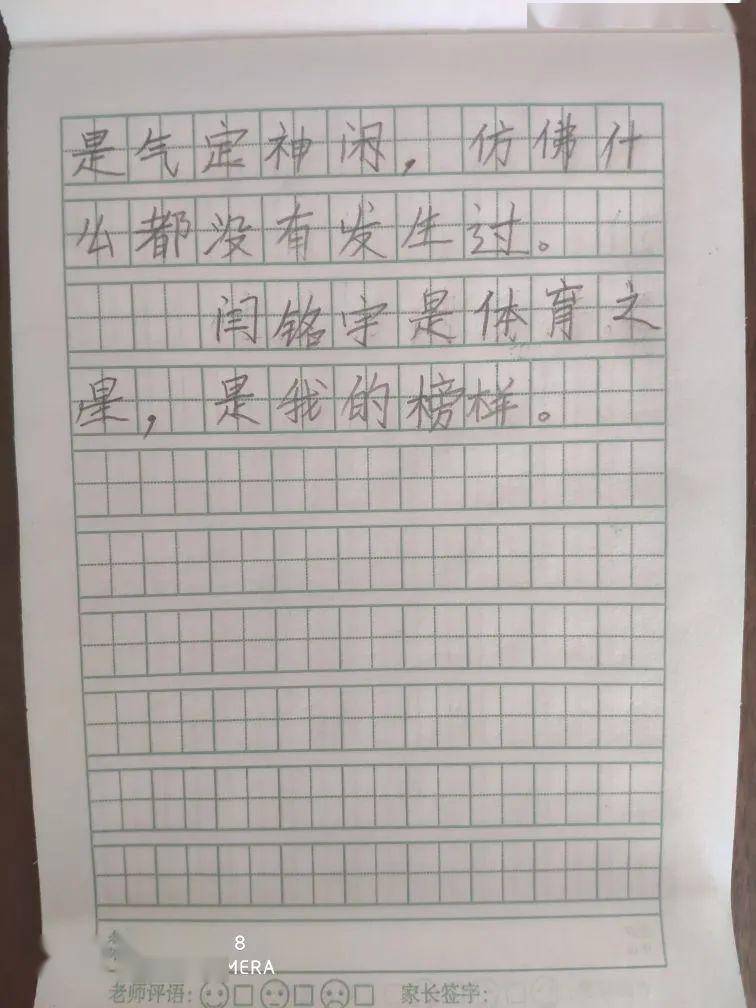 是气定神闲，仿佛什
么都没有发生过。
闫铭宇是体育之
星，是我的榜样。
8
MERA
老师评语： 家长签字：